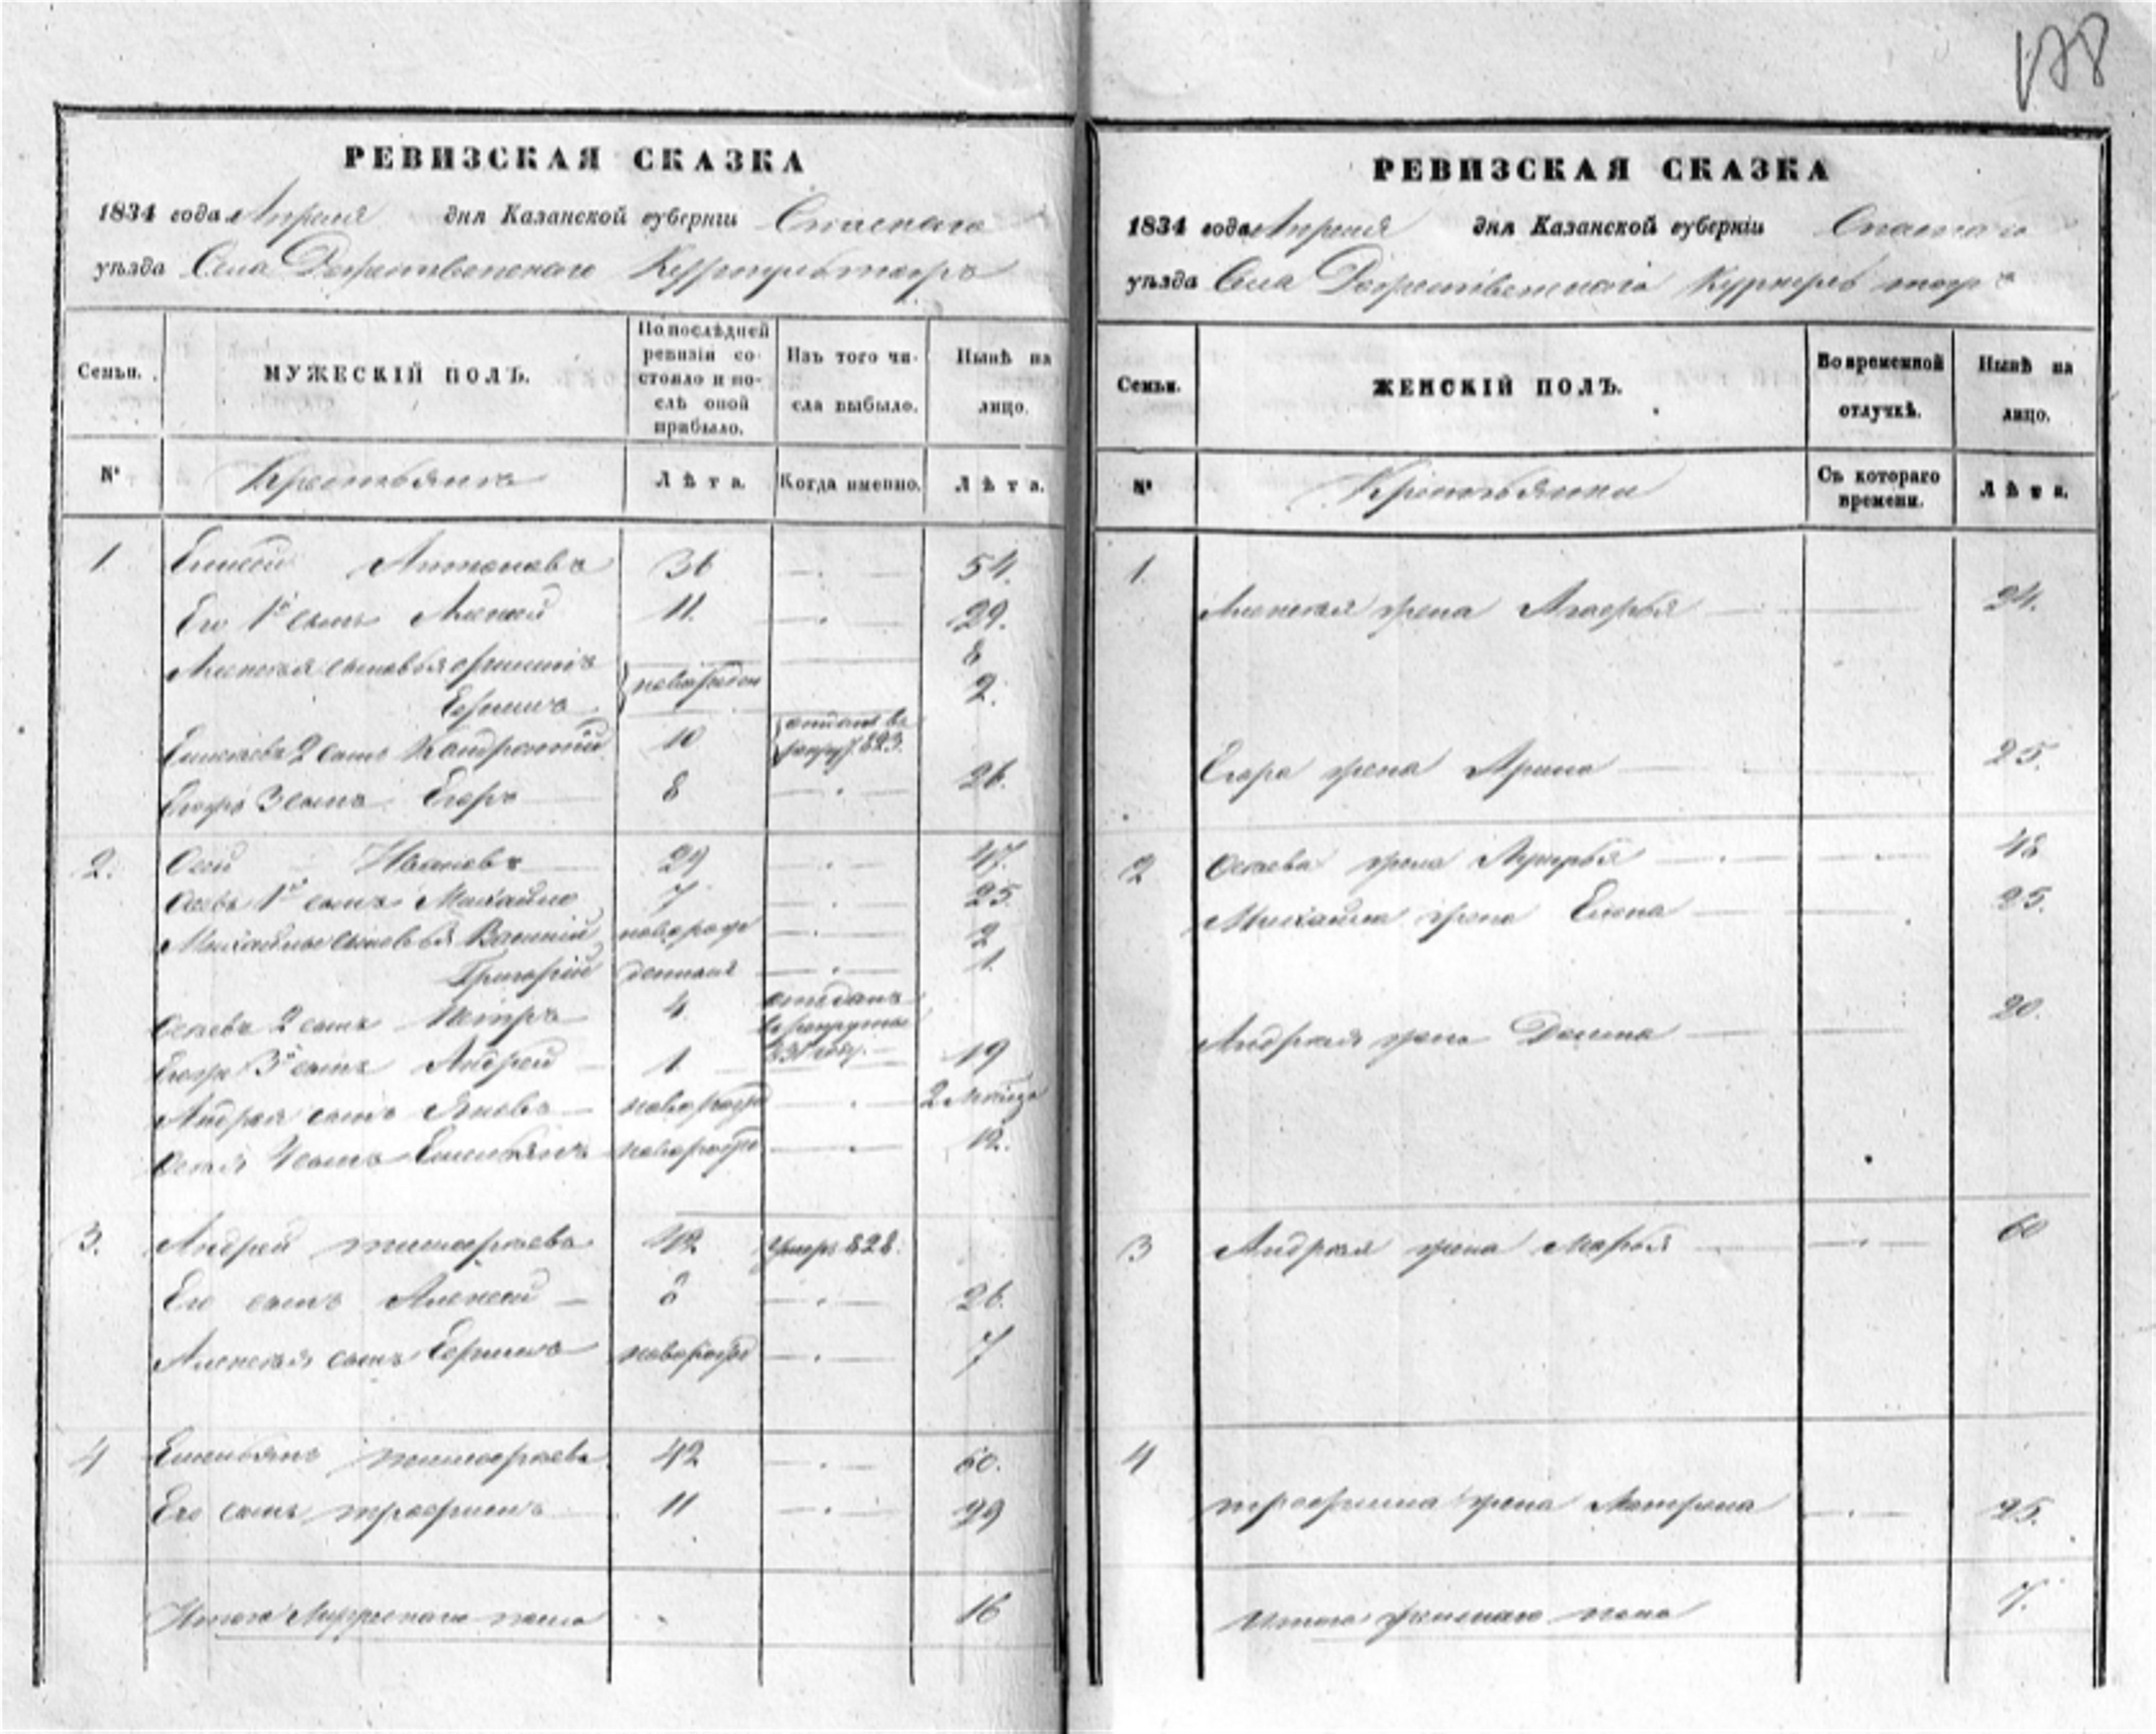 178
РЕВИЗСКАЯ СКАЗКА
1834 года Апреля дня Казанской губерніи Спаскаго
уѣзда Села Рожественскаго
Семьи.
МУЖЕСКІЙ ПОЛЪ.
По послѣдней ревизіи состояло и послѣ оной прибыло.
Изъ того числа выбыло.
Нынѣ на лицо.
№
Крестьянъ
Лѣта.
Когда именно.
Лѣта.
1. Антоновъ 36 54.
Его 1й сынъ Алексей 11. 29.
Алексея сыновья 8
новорожден 2.
2 сынъ Кандратий 10 823.
3 сынъ Егоръ 8 26.
2. Ивановъ 29 47.
1й сынъ Михайло 7 25.
Михайлы сыновья Василий новорож 2
Григорий денные 1
2 сынъ Петръ 4 отданъ
въ рекруты
831 году.
3й сынъ Андрей 1 19
Андрея сынъ Яковъ новорожд 2
4 сынъ Емельянъ новорожд 12.
3. Андрей Тимофеевъ 42 Умеръ 828.
Его сынъ Алексей 8 26.
Алексея сынъ новорожд 7
4 Емельянъ Тимофеевъ 42 60.
Его сынъ Трофимъ 11 29
Итого Мужескаго пола 16
РЕВИЗСКАЯ СКАЗКА
1834 года Апреля дня Казанской губерніи Спаскаго
уѣзда Села Рожественскаго
Семьи.
ЖЕНСКІЙ ПОЛЪ.
Во временной отлучкѣ.
Нынѣ на лицо.
№
Крестьянки
Съ котораго времени.
Лѣта.
1.
Алексея жена 24.
Егора жена Арина 25.
2 жена 48
Михайлы жена Елена 25.
Андрея жена 20.
3 Андрея жена Марья 60
4
Трофима жена Матрена 25.
Итого женскаго пола 7.